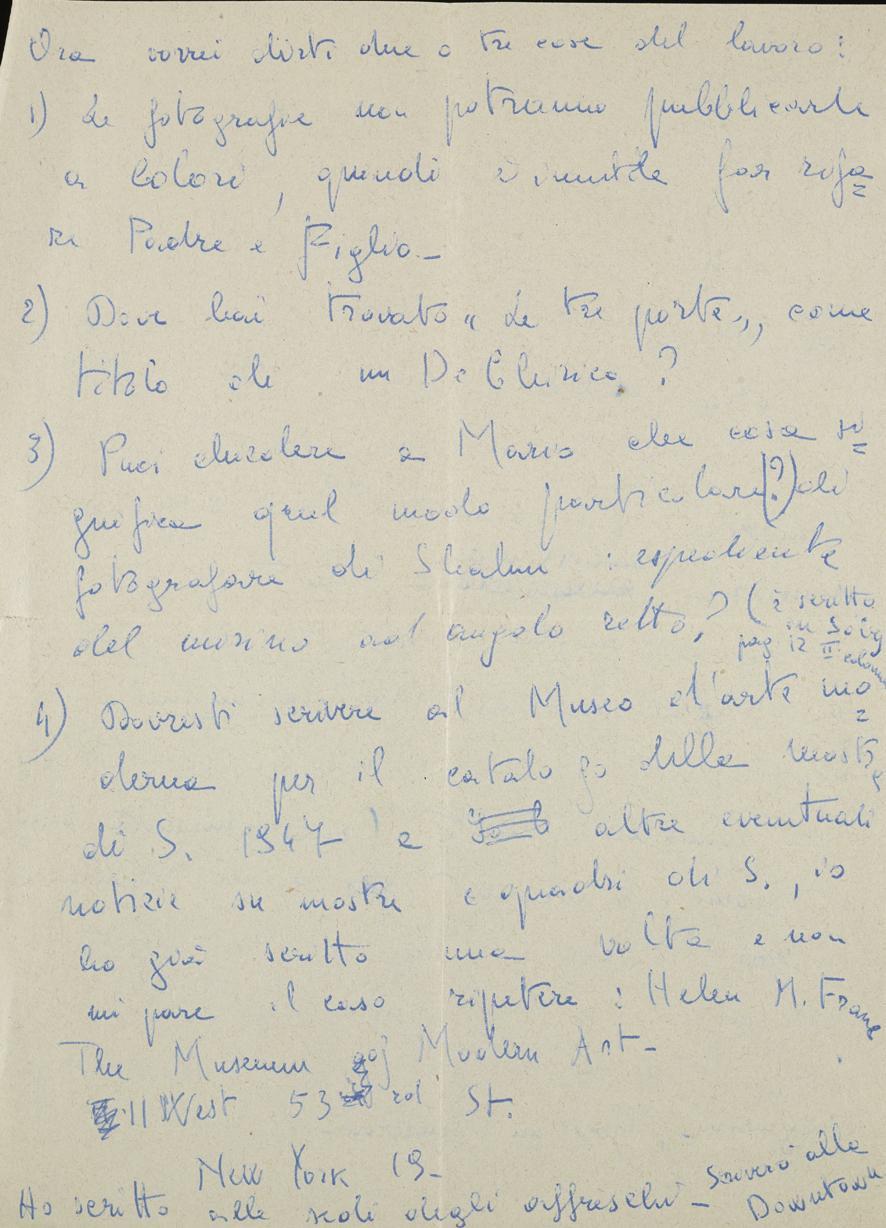 Ora vorrei dirti due o tre cose del lavoro:
1) Le fotografie non potranno pubblicarle
a Colori, quindi è inutile far rifa=
re Padre e Figlio_
2) Dove hai trovato "Le tre porte", come
titolo di un De Chirico?
3) Puoi chiedere a Mario che cosa si=
gnifica quel modo particolare(?) di
fotografare di Shahn: espediente
del mirino ad angolo retto,? (è scritto
in Soby
pag 12 II colonna
4) Dovresti scrivere al Museo d'arte mo=
derna per il catalogo della mostra
di S. 1947 e altre eventuali
notizie su mostre e quadri di S., io
ho già scritto una volta e non
mi pare il caso ripetere: Helen M. Franc
The Museum of Modern Art_
11 West 53 rd St.
New York 19_
Ho scritto alle sedi degli affreschi_ Scriverò alla
Downtown